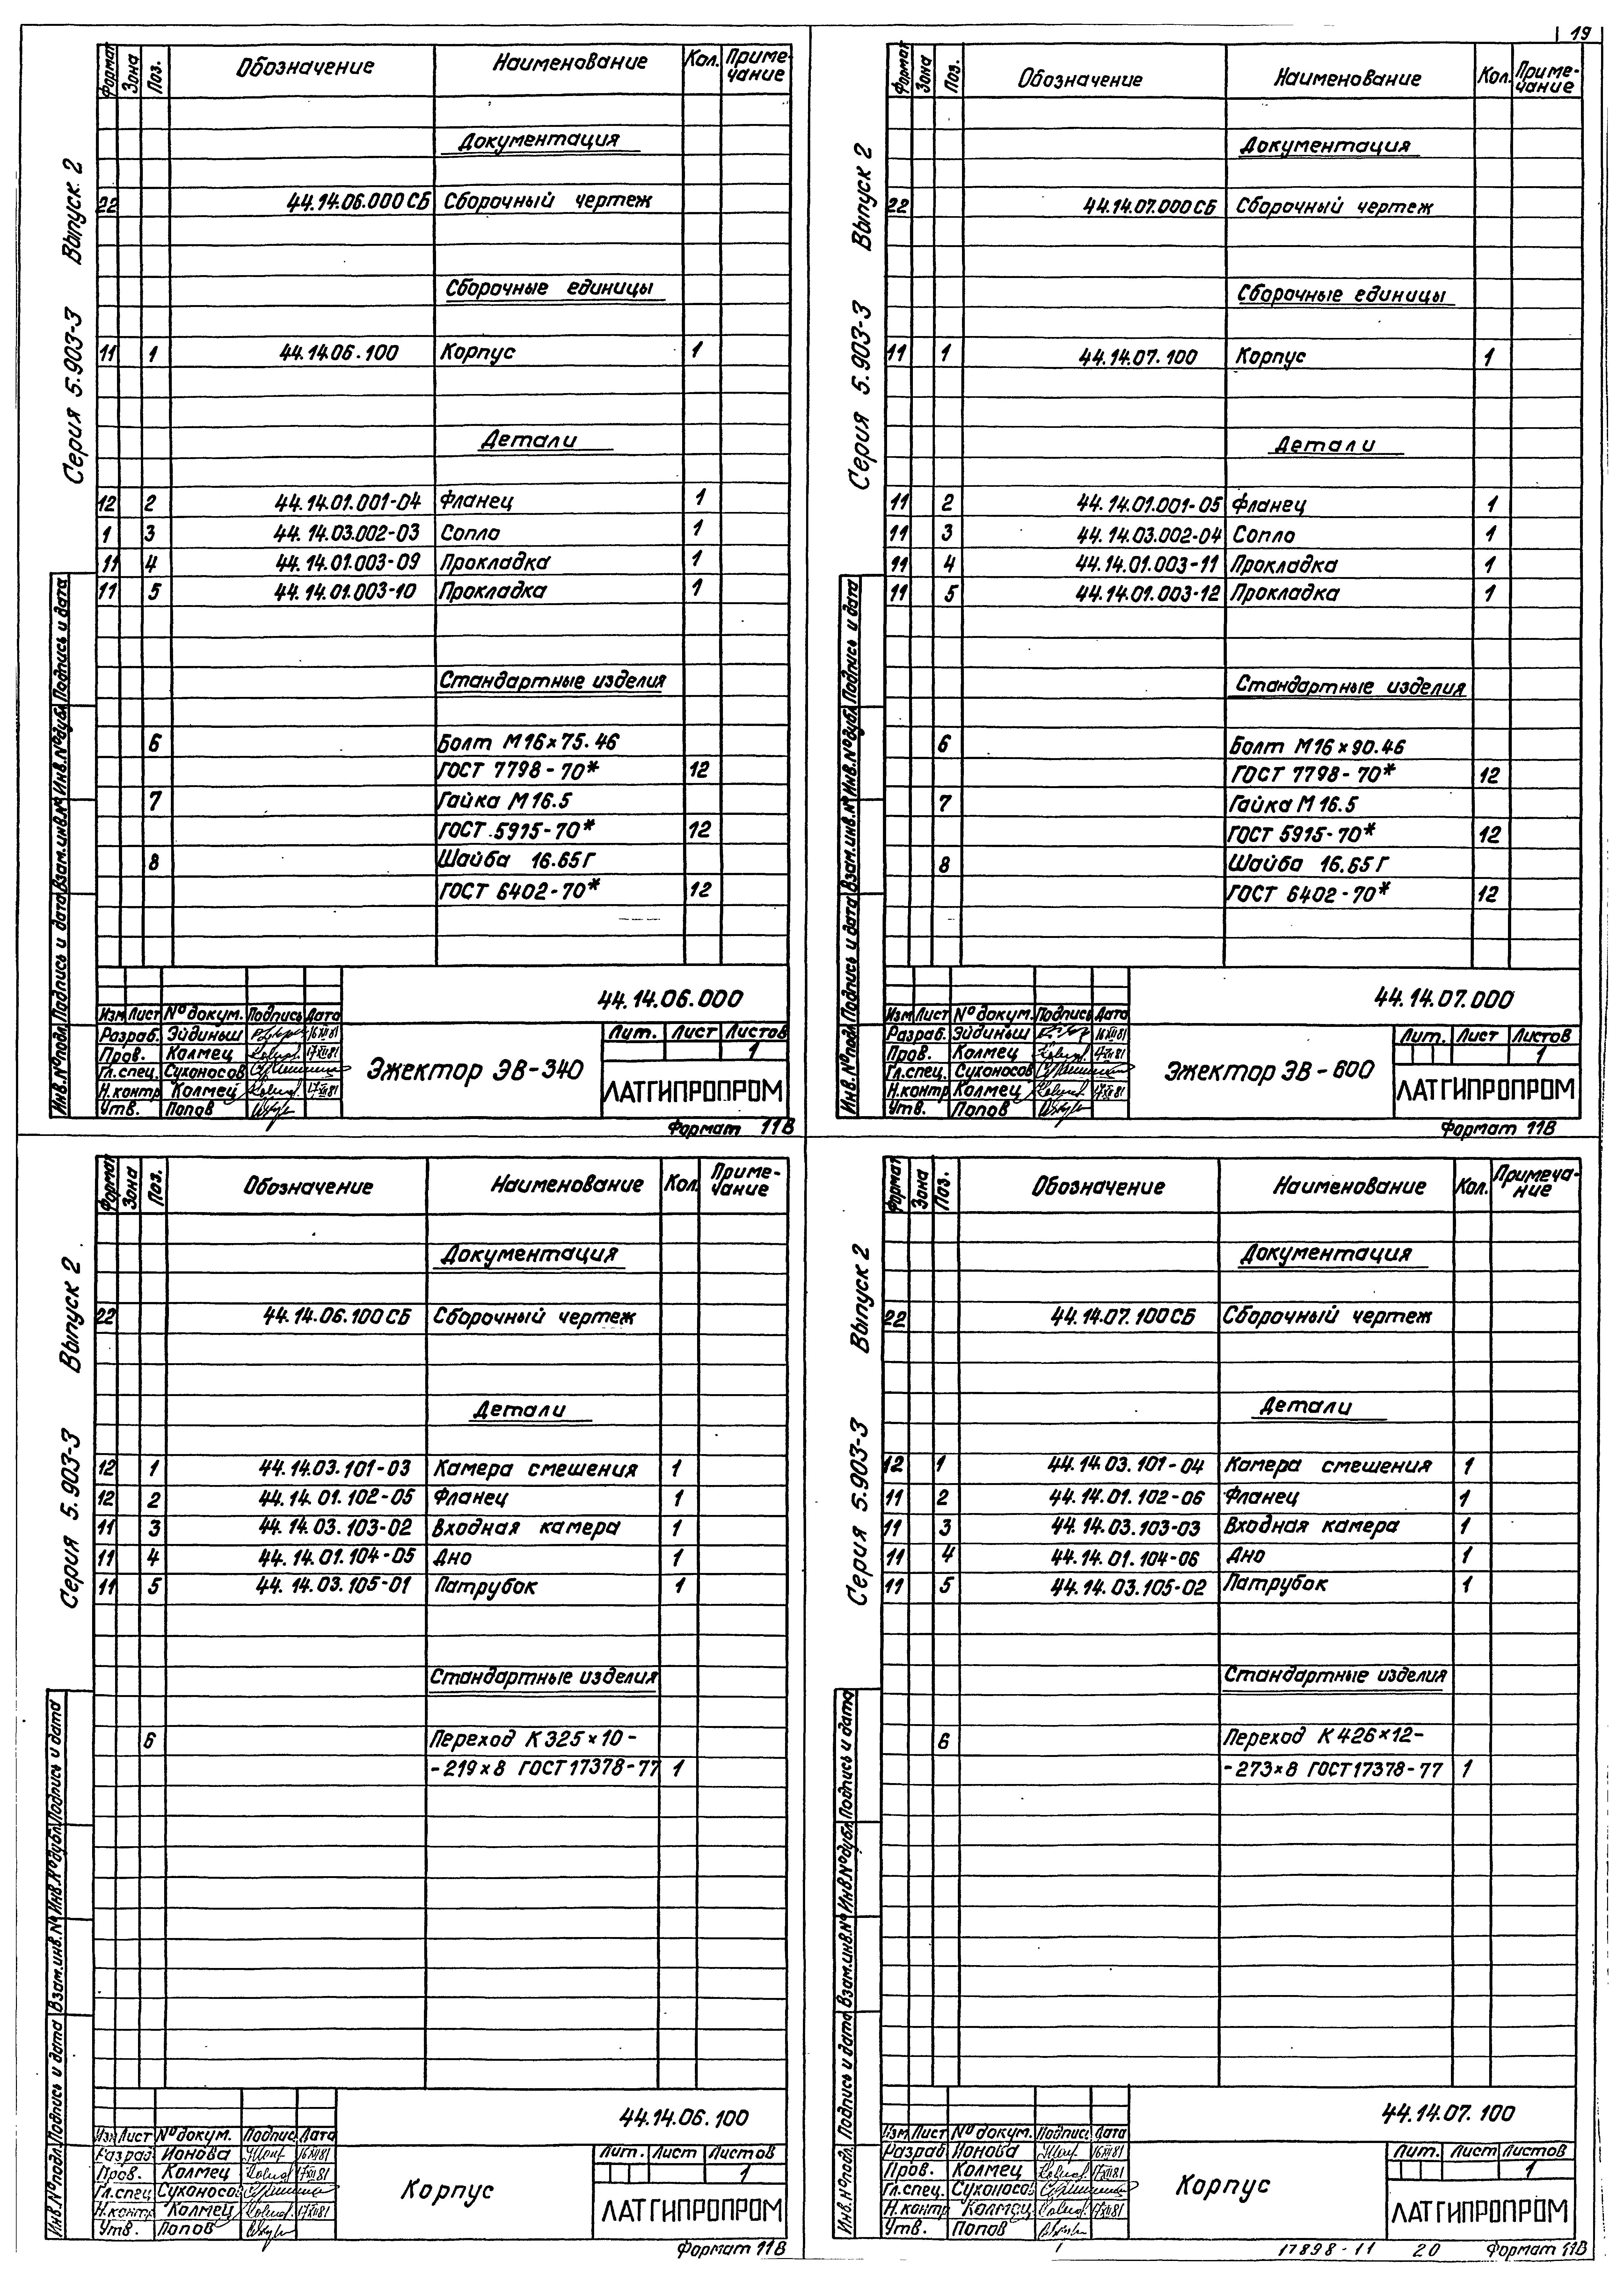 19
Серия 5.903-3 Выпуск 2
Формат Зона Поз. Обозначение Наименование Кол. Приме-
чание
Документация
22 44.14.06.000 СБ Сборочный чертеж
Сборочные единицы
11 1 44.14.06.100 Корпус 1
Детали
12 2 44.14.01.001-04 Фланец 1
1 3 44.14.03.002-03 Сопло 1
11 4 44.14.01.003-09 Прокладка 1
11 5 44.14.01.003-10 Прокладка 1
Стандартные изделия
6 Болт М16×75.46
ГОСТ 7798-70* 12
7 Гайка М16.5
ГОСТ 5915-70* 12
8 Шайба 16.65Г
ГОСТ 6402-70* 12
Инв.№подл. Подпись и дата Взам.инв.№ Инв.№дубл. Подпись и дата
44.14.06.000
Изм Лист №докум. Подпись Дата
Разраб. Эйдиньш 16.XII.81
Пров. Колмец 17.XII.81
Гл.спец. Сухоносов
Н.контр Колмец 17.XII.81
Утв. Попов
Эжектор ЭВ-340
Лит. Лист Листов
1
ЛАТГИПРОПРОМ
Формат 11В
Серия 5.903-3 Выпуск 2
Формат Зона Поз. Обозначение Наименование Кол. Приме-
чание
Документация
22 44.14.07.000 СБ Сборочный чертеж
Сборочные единицы
11 1 44.14.07.100 Корпус 1
Детали
11 2 44.14.01.001-05 Фланец 1
11 3 44.14.03.002-04 Сопло 1
11 4 44.14.01.003-11 Прокладка 1
11 5 44.14.01.003-12 Прокладка 1
Стандартные изделия
6 Болт М16×90.46
ГОСТ 7798-70* 12
7 Гайка М16.5
ГОСТ 5915-70* 12
8 Шайба 16.65Г
ГОСТ 6402-70* 12
Инв.№подл. Подпись и дата Взам.инв.№ Инв.№дубл. Подпись и дата
44.14.07.000
Изм Лист №докум. Подпись Дата
Разраб. Эйдиньш 16.XII.81
Пров. Колмец 17.XII.81
Гл.спец. Сухоносов
Н.контр Колмец 17.XII.81
Утв. Попов
Эжектор ЭВ-600
Лит. Лист Листов
1
ЛАТГИПРОПРОМ
Формат 11В
Серия 5.903-3 Выпуск 2
Формат Зона Поз. Обозначение Наименование Кол. Приме-
чание
Документация
22 44.14.06.100 СБ Сборочный чертеж
Детали
12 1 44.14.03.101-03 Камера смешения 1
12 2 44.14.01.102-05 Фланец 1
11 3 44.14.03.103-02 Входная камера 1
11 4 44.14.01.104-05 Дно 1
11 5 44.14.03.105-01 Патрубок 1
Стандартные изделия
6 Переход К 325×10-
-219×8 ГОСТ17378-77 1
Инв.№подл. Подпись и дата Взам.инв.№ Инв.№дубл. Подпись и дата
44.14.06.100
Изм Лист №докум. Подпис. Дата
Разраб. Ионова 16.XII.81
Пров. Колмец 17.XII.81
Гл.спец Сухоносо
Н.контр Колмец 17.XII.81
Утв. Попов
Корпус
Лит. Лист Листов
1
ЛАТГИПРОПРОМ
Формат 11В
Серия 5.903-3 Выпуск 2
Формат Зона Поз. Обозначение Наименование Кол. Примеча-
ние
Документация
22 44.14.07.100 СБ Сборочный чертеж
Детали
12 1 44.14.03.101-04 Камера смешения 1
11 2 44.14.01.102-06 Фланец 1
11 3 44.14.03.103-03 Входная камера 1
11 4 44.14.01.104-06 Дно 1
11 5 44.14.03.105-02 Патрубок 1
Стандартные изделия
6 Переход К 426×12-
-273×8 ГОСТ17378-77 1
Инв.№подл. Подпись и дата Взам.инв.№ Инв.№дубл. Подпись и дата
44.14.07.100
Изм Лист №докум. Подпись Дата
Разраб Ионова 16.XII.81
Пров. Колмец 17.XII.81
Гл.спец. Сухоносо
Н.контр Колмец 17.XII.81
Утв. Попов
Корпус
Лит. Лист Листов
1
ЛАТГИПРОПРОМ
17898-11 20 Формат 11В